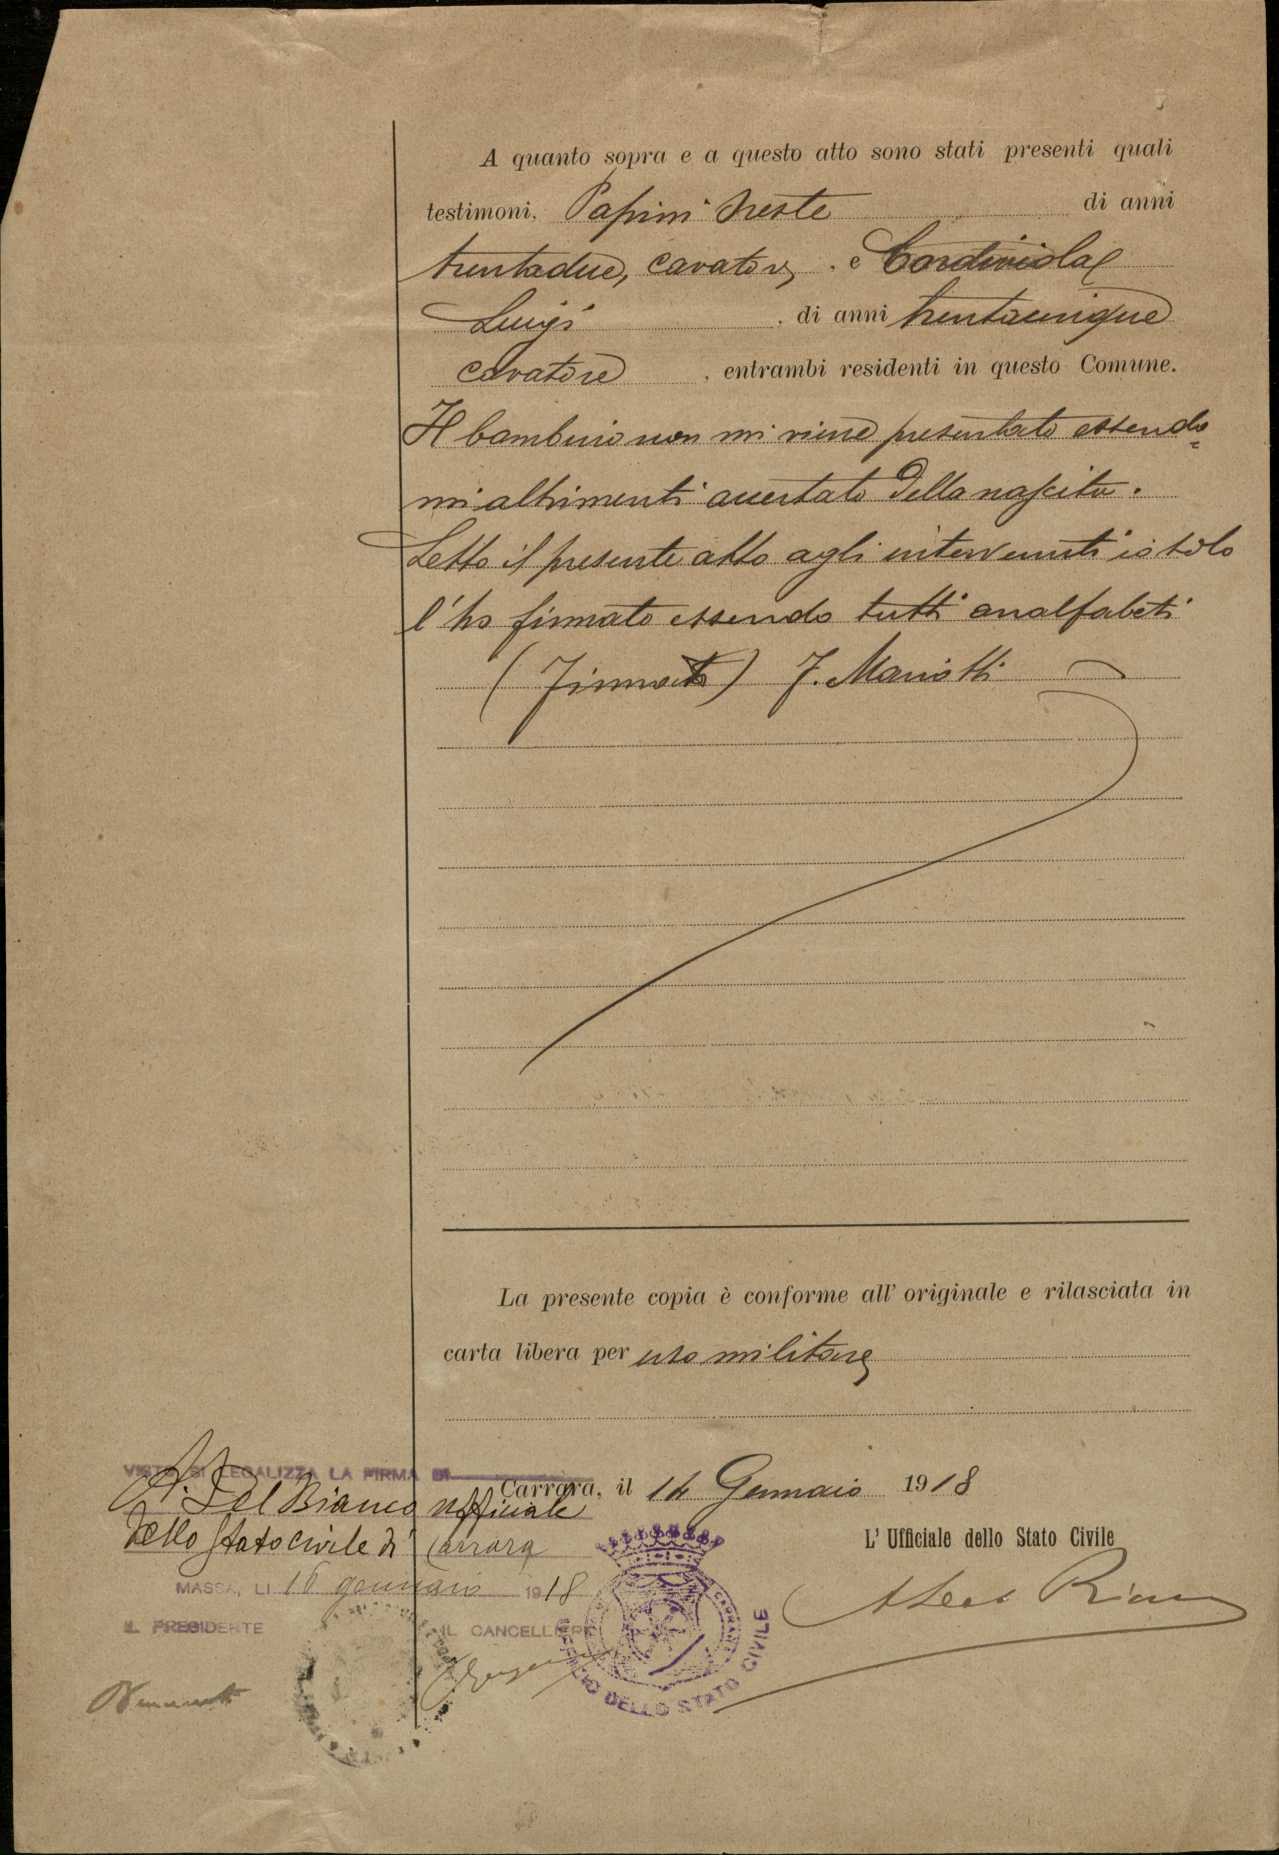 A quanto sopra e a questo atto sono stati presenti quali
testimoni, Papini Oreste di anni
trentadue, cavatore, e Cordiviola
Luigi, di anni trentacinque
cavatore, entrambi residenti in questo Comune.
Il bambino non mi viene presentato essendo=
mi altrimenti accertato della nascita.
Letto il presente atto agli intervenuti io solo
l'ho firmato essendo tutti analfabeti
(Firmato) F. Mariotti
La presente copia è conforme all'originale e rilasciata in
carta libera per uso militare
Carrara, il 14 Gennaio 1918
L'Ufficiale dello Stato Civile
VISTO SI LEGALIZZA LA FIRMA DI
Del Bianco Ufficiale
dello Stato Civile di Carrara
MASSA, LI 16 gennaio 1918
IL PRESIDENTE IL CANCELLIERE
UFFICIO DELLO STATO CIVILE